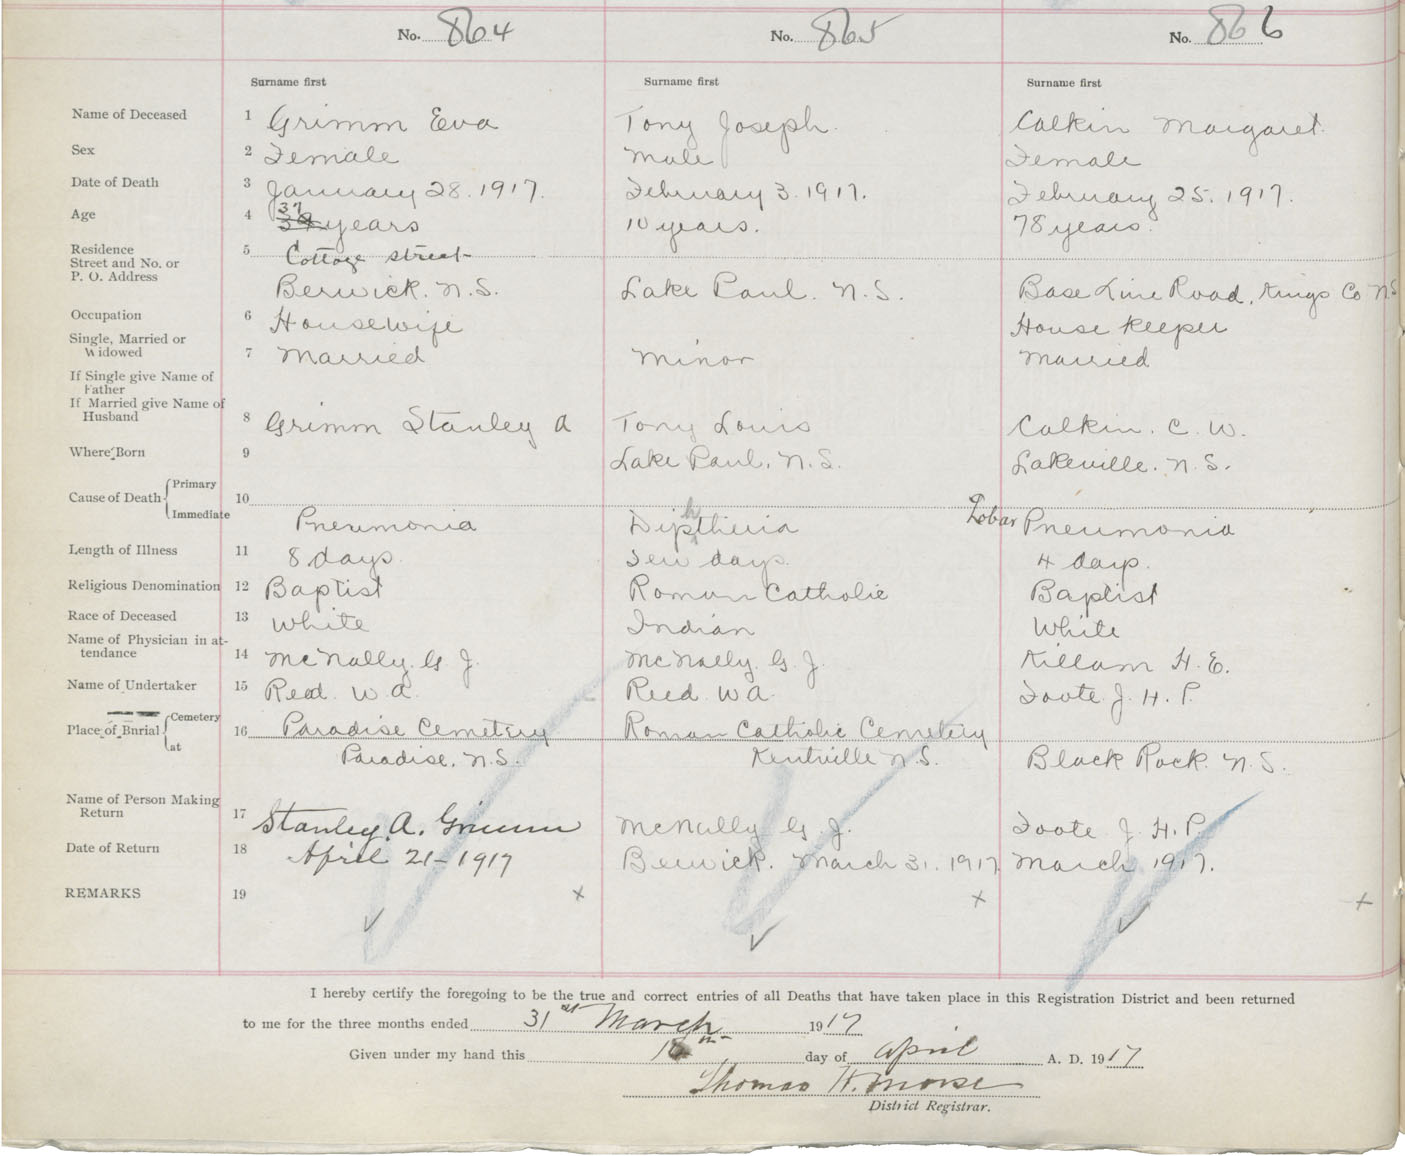 No. 864 No. 865 No. 866
Surname first Surname first Surname first
Name of Deceased 1 Grimm Eva Tony Joseph. Calkin Margaret.
Sex 2 Female Male Female
Date of Death 3 January 28. 1917. February 3. 1917. February 25. 1917.
Age 4 37 years 10 years. 78 years.
Residence 5 Cottage street
Street and No. or
P. O. Address Berwick. N.S. Lake Paul. N.S. Base Line Road, Kings Co N.S
Occupation 6 Housewife House keeper
Single, Married or
Widowed 7 Married Minor Married
If Single give Name of
Father
If Married give Name of
Husband 8 Grimm Stanley A Tony Louis Calkin. C. W.
Where Born 9 Lake Paul, N.S. Lakeville. N.S.
Cause of Death { Primary 10
Immediate Pneumonia Diphtheria Lobar Pneumonia
Length of Illness 11 8 days. Few days. 4 days.
Religious Denomination 12 Baptist Roman Catholic Baptist
Race of Deceased 13 White Indian White
Name of Physician in at-
tendance 14 McNally. G J. McNally. G. J. Killam H. E.
Name of Undertaker 15 Reed. W A. Reed. W A. Foote. J. H. P.
Place of Burial { Cemetery 16 Paradise Cemetery Roman Catholic Cemetery
at Paradise, N.S. Kentville N.S. Black Rock. N.S.
Name of Person Making
Return 17 Stanley. A. Grimm McNally G J. Foote J. H. P.
Date of Return 18 April 21-1917 Berwick. March 31. 1917. March 1917.
REMARKS 19 x x x
I hereby certify the foregoing to be the true and correct entries of all Deaths that have taken place in this Registration District and been returned
to me for the three months ended 31st March 1917
Given under my hand this day of April A. D. 1917
Thomas H. Morse
District Registrar.